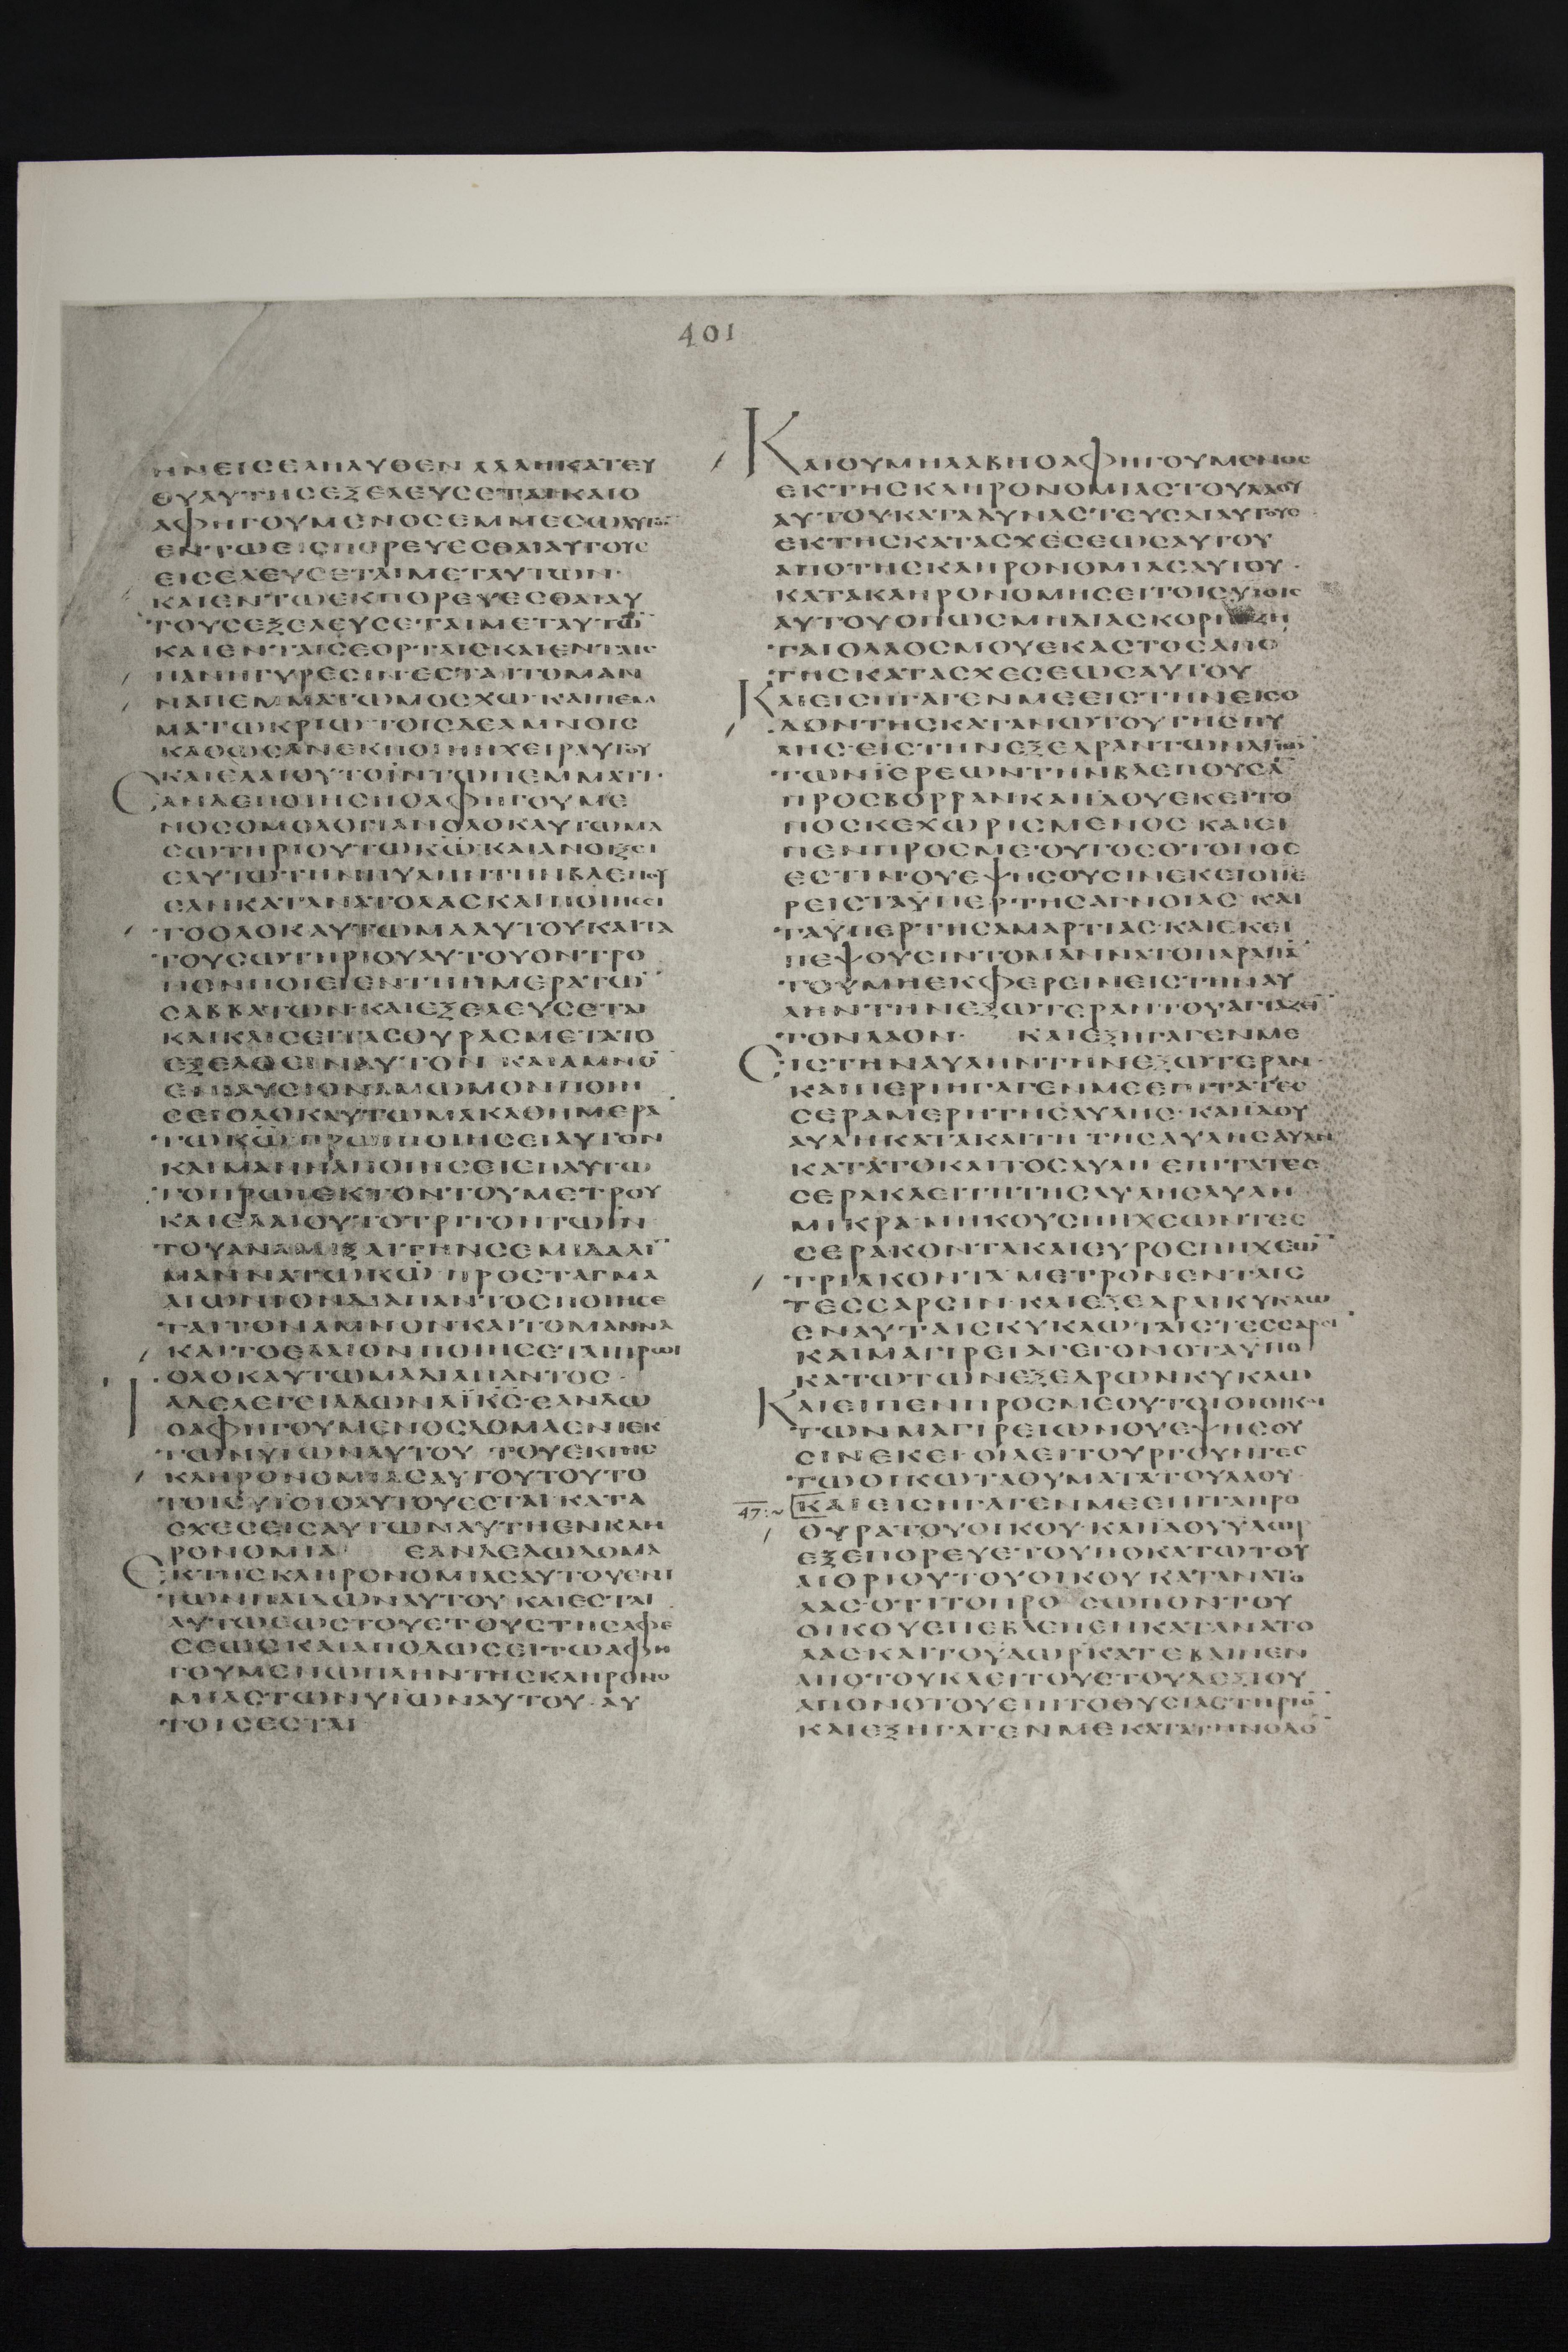 401
ΗΝΕΙϹΕΛΗΛΥΘΕΝ ΑΛΛΗΚΑΤΕΥ
ΘΥΑΥΤΗϹΕΞΕΛΕΥϹΕΤΑΙΚΑΙΟ
ΑΦΗΓΟΥΜΕΝΟϹΕΜΜΕϹΩΑΥΤΩ̅
ΕΝΤΩΕΙϹΠΟΡΕΥΕϹΘΑΙΑΥΤΟΥϹ
ΕΙϹΕΛΕΥϹΕΤΑΙΜΕΤΑΥΤΩΝ·
ΚΑΙΕΝΤΩΕΚΠΟΡΕΥΕϹΘΑΙΑΥ
ΤΟΥϹΕΞΕΛΕΥϹΕΤΑΙΜΕΤΑΥΤΩ̅
ΚΑΙΕΝΤΑΙϹΕΟΡΤΑΙϹΚΑΙΕΝΤΑΙϹ
ΠΑΝΗΓΥΡΕϹΙΝΕϹΤΑΙΤΟΜΑΝ
ΝΑΠΕΜΜΑΤΩΜΟϹΧΩ ΚΑΙΠΕΜ
ΜΑΤΩΚΡΙΩ ΤΟΙϹΔΕΑΜΝΟΙϹ
ΚΑΘΩϹΑΝΕΚΠΟΙΗΗΧΕΙΡΑΥΤΟΥ
ΚΑΙΕΛΑΙΟΥΤΟΪΝΤΩΠΕΜΜΑΤΙ·
ΕΑΝΔΕΠΟΙΗϹΗΟΑΦΗΓΟΥΜΕ
ΝΟϹΟΜΟΛΟΓΙΑΝΟΛΟΚΑΥΤΩΜΑ
ϹΩΤΗΡΙΟΥΤΩΚΩ̅ ΚΑΙΑΝΟΙΞΕΙ
ΕΑΥΤΩΤΗΝΠΥΛΗΝΤΗΝΒΛΕΠΟΥ
ϹΑΝΚΑΤΑΝΑΤΟΛΑϹΚΑΙΠΟΙΗϹΕΙ
ΤΟΟΛΟΚΑΥΤΩΜΑΑΥΤΟΥΚΑΙΤΑ
ΤΟΥϹΩΤΗΡΙΟΥΑΥΤΟΥΟΝΤΡΟ
ΠΟΝΠΟΙΕΙΕΝΤΗΗΜΕΡΑΤΩ̅
ϹΑΒΒΑΤΩΝ·ΚΑΙΕΞΕΛΕΥϹΕΤΑΙ
ΚΑΙΚΛΕΙϹΕΙΤΑϹΘΥΡΑϹΜΕΤΑΤΟ
ΕΞΕΛΘΕΙΝΑΥΤΟΝ ΚΑΙΑΜΝΟ̅
ΕΝΙΑΥϹΙΟΝΑΜΩΜΟΝΠΟΙΗ
ϹΕΙΟΛΟΚΑΥΤΩΜΑΚΑΘΗΜΕΡΑ̅
ΤΩΚΩ̅ ΠΡΩΙΠΟΙΗϹΕΙΑΥΤΟΝ
ΚΑΙΜΑΝΝΑΠΟΙΗϹΕΙΕΠΑΥΤΩ
ΤΟΠΡΩΙΕΚΤΟΝΤΟΥΜΕΤΡΟΥ
ΚΑΙΕΛΑΙΟΥΤΟΤΡΙΤΟΝΤΩΪΝ
ΤΟΥΑΝΑΜΙΞΑΙΤΗΝϹΕΜΙΔΑΛΙ̅
ΜΑΝΝΑΤΩΚΩ̅ ΠΡΟϹΤΑΓΜΑ
ΑΙΩΝΙΟΝΔΙΑΠΑΝΤΟϹΠΟΙΗϹΕ
ΤΑΙΤΟΝΑΜΝΟΝΚΑΙΤΟΜΑΝΝΑ
ΚΑΙΤΟΕΛΑΙΟΝΠΟΙΗϹΕΤΑΙΠΡΩΙ
ΟΛΟΚΑΥΤΩΜΑΔΙΑΠΑΝΤΟϹ·
ΤΑΔΕΛΕΓΕΙΑΔΩΝΑΪΚ̅Ϲ̅·ΕΑΝΔΩ
ΟΑΦΗΓΟΥΜΕΝΟϹΔΟΜΑΕΝΙΕΚ
ΤΩΝΥΙΩΝΑΥΤΟΥ ΤΟΥΕΚΤΗϹ
ΚΛΗΡΟΝΟΜΙΑϹΑΥΤΟΥΤΟΥΤΟ
ΤΟΙϹΥΙΟΙϹΑΥΤΟΥΕϹΤΑΙ ΚΑΤΑ
ϹΧΕϹΕΙϹΑΥΤΩΝΑΥΤΗΕΝΚΛΗ
ΡΟΝΟΜΙΑ· ΕΑΝΔΕΔΩΔΟΜΑ
ΕΚΤΗϹΚΛΗΡΟΝΟΜΙΑϹΑΥΤΟΥΕΝΙ
ΤΩΝΠΑΙΔΩΝΑΥΤΟΥ ΚΑΙΕϹΤΑΙ
ΑΥΤΩΕΩϹΤΟΥΕΤΟΥϹΤΗϹΑΦΕ
ϹΕΩϹ ΚΑΙΑΠΟΔΩϹΕΙΤΩΑΦΗ
ΓΟΥΜΕΝΩΠΛΗΝΤΗϹΚΛΗΡΟΝΟ
ΜΙΑϹΤΩΝΥΙΩΝΑΥΤΟΥ·ΑΥ
ΤΟΙϹΕϹΤΑΙ
ΚΑΙΟΥΜΗΛΑΒΗΟΑΦΗΓΟΥΜΕΝΟϹ
ΕΚΤΗϹΚΛΗΡΟΝΟΜΙΑϹΤΟΥΛΑΟΥ
ΑΥΤΟΥΚΑΤΑΔΥΝΑϹΤΕΥϹΑΙΑΥΤΟΥϹ·
ΕΚΤΗϹΚΑΤΑϹΧΕϹΕΩϹΑΥΤΟΥ
ΑΠΟΤΗϹΚΛΗΡΟΝΟΜΙΑϹΑΥΤΟΥ·
ΚΑΤΑΚΛΗΡΟΝΟΜΗϹΕΙΤΟΙϹΥΙΟΙϹ
ΑΥΤΟΥΟΠΩϹΜΗΔΙΑϹΚΟΡΠΙΖΗ
ΤΑΙΟΛΑΟϹΜΟΥΕΚΑϹΤΟϹΑΠΟ
ΤΗϹΚΑΤΑϹΧΕϹΕΩϹΑΥΤΟΥ
ΚΑΙΕΙϹΗΓΑΓΕΝΜΕΕΙϹΤΗΝΕΙϹΟ
ΔΟΝΤΗϹΚΑΤΑΝΩΤΟΥΤΗϹΠΥ
ΛΗϹ·ΕΙϹΤΗΝΕΞΕΔΡΑΝΤΩΝΑΓΙΩ̅
ΤΩΝΪΕΡΕΩΝΤΗΝΒΛΕΠΟΥϹΑ̅
ΠΡΟϹΒΟΡΡΑΝΚΑΙΪΔΟΥΕΚΕΙΤΟ
ΠΟϹΚΕΧΩΡΙϹΜΕΝΟϹ ΚΑΙΕΙ
ΠΕΝΠΡΟϹΜΕ·ΟΥΤΟϹΟΤΟΠΟϹ
ΕϹΤΙΝ·ΟΥΕΨΗϹΟΥϹΙΝΕΚΕΙΟΙΪΕ
ΡΕΙϹΤΑΫΠΕΡΤΗϹΑΓΝΟΙΑϹ ΚΑΙ
ΤΑΫΠΕΡΤΗϹΑΜΑΡΤΙΑϹ·ΚΑΙΕΚΕΙ
ΠΕΨΟΥϹΙΝΤΟΜΑΝΝΑΤΟΠΑΡΑΠΑ̅
ΤΟΥΜΗΕΚΦΕΡΕΙΝΕΙϹΤΗΝΑΥ
ΛΗΝΤΗΝΕΞΩΤΕΡΑΝ·ΤΟΥΑΓΙΑΖΕΙ̅
ΤΟΝΛΑΟΝ· ΚΑΙΕΞΗΓΑΓΕΝΜΕ
ΕΙϹΤΗΝΑΥΛΗΝΤΗΝΕΞΩΤΕΡΑΝ·
ΚΑΙΠΕΡΙΗΓΑΓΕΝΜΕΕΠΙΤΑΤΕϹ
ϹΕΡΑΜΕΡΗΤΗϹΑΥΛΗϹ·ΚΑΙΪΔΟΥ
ΑΥΛΗΚΑΤΑΚΛΙΤΗ ΤΗϹΑΥΛΗϹΑΥΛΗ
ΚΑΤΑΤΟΚΛΙΤΟϹΑΥΛΗ ΕΠΙΤΑΤΕϹ
ϹΕΡΑΚΛΕΙΤΗΤΗϹΑΥΛΗϹΑΥΛΗ
ΜΙΚΡΑ·ΜΗΚΟΥϹΠΗΧΕΩΝΤΕϹ
ϹΕΡΑΚΟΝΤΑΚΑΙΕΥΡΟϹΠΗΧΕΩ̅
ΤΡΙΑΚΟΝΤΑ ΜΕΤΡΟΝΕΝΤΑΙϹ
ΤΕϹϹΑΡϹΙΝ·ΚΑΙΕΞΕΔΡΑΙΚΥΚΛΩ
ΕΝΑΥΤΑΙϹΚΥΚΛΩΤΑΙϹΤΕϹϹΑΡϹΙ
ΚΑΙΜΑΓΙΡΕΙΑΓΕΓΟΝΟΤΑΥΠΟ
ΚΑΤΩΤΩΝΕΞΕΔΡΩΝΚΥΚΛΩ
ΚΑΙΕΙΠΕΝΠΡΟϹΜΕΟΥΤΟΙΟΙΟΙΚΟΙ
ΤΩΝΜΑΓΙΡΕΙΩΝΟΥΕΨΗϹΟΥ
ϹΙΝΕΚΕΙ·ΟΙΛΕΙΤΟΥΡΓΟΥΝΤΕϹ
ΤΩΟΙΚΩΤΑΘΥΜΑΤΑΤΟΥΛΑΟΥ·
47:~ ΚΑΙΕΙϹΗΓΑΓΕΝΜΕΕΠΙΤΑΠΡΟ
ΘΥΡΑΤΟΥΟΙΚΟΥ·ΚΑΙΪΔΟΥΫΔΩΡ
ΕΞΕΠΟΡΕΥΕΤΟΥΠΟΚΑΤΩΤΟΥ
ΑΙΘΡΙΟΥΤΟΥΟΙΚΟΥ ΚΑΤΑΝΑΤΟ
ΛΑϹ·ΟΤΙΤΟΠΡΟϹΩΠΟΝΤΟΥ
ΟΙΚΟΥΕΠΕΒΛΕΠΕΝΚΑΤΑΝΑΤΟ
ΛΑϹΚΑΙΤΟΥΔΩΡΚΑΤΕΒΑΙΝΕΝ
ΑΠΟΤΟΥΚΛΕΙΤΟΥϹΤΟΥΔΕΞΙΟΥ
ΑΠΟΝΟΤΟΥΕΠΙΤΟΘΥϹΙΑϹΤΗΡΙΟ̅
ΚΑΙΕΞΗΓΑΓΕΝΜΕΚΑΤΑΤΗΝΟΔΟ̅